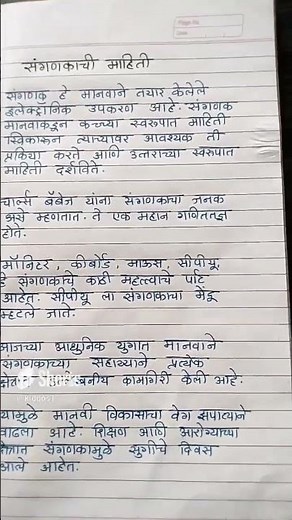 संगणकाची माहिती
संगणक हे मानवाने तयार केलेले
इलेक्ट्रॉनिक उपकरण आहे. संगणक
मानवाकडून कच्च्या स्वरूपात माहिती
स्विकारून त्याच्यावर आवश्यक ती
प्रक्रिया करते आणि उत्तराच्या स्वरूपात
माहिती दर्शविते.
चार्ल्स बॅबेज यांना संगणकाचा जनक
असे म्हणतात. ते एक महान गणितज्ञ
होते.
मॉनिटर, कीबोर्ड, माऊस, सीपीयू
हे संगणकाचे काही महत्वाचे पार्ट
आहेत. सीपीयू ला संगणकाचा मेंदू
म्हटले जाते.
आजच्या आधुनिक युगात मानवाने
संगणकाच्या सहाय्याने प्रत्येक
कामगिरी केली आहे.
यामुळे मानवी विकासाचा वेग झपाट्याने
वाढला आहे. शिक्षण आणि आरोग्याच्या
संगणकामुळे सुगीचे दिवस
आले आहेत.